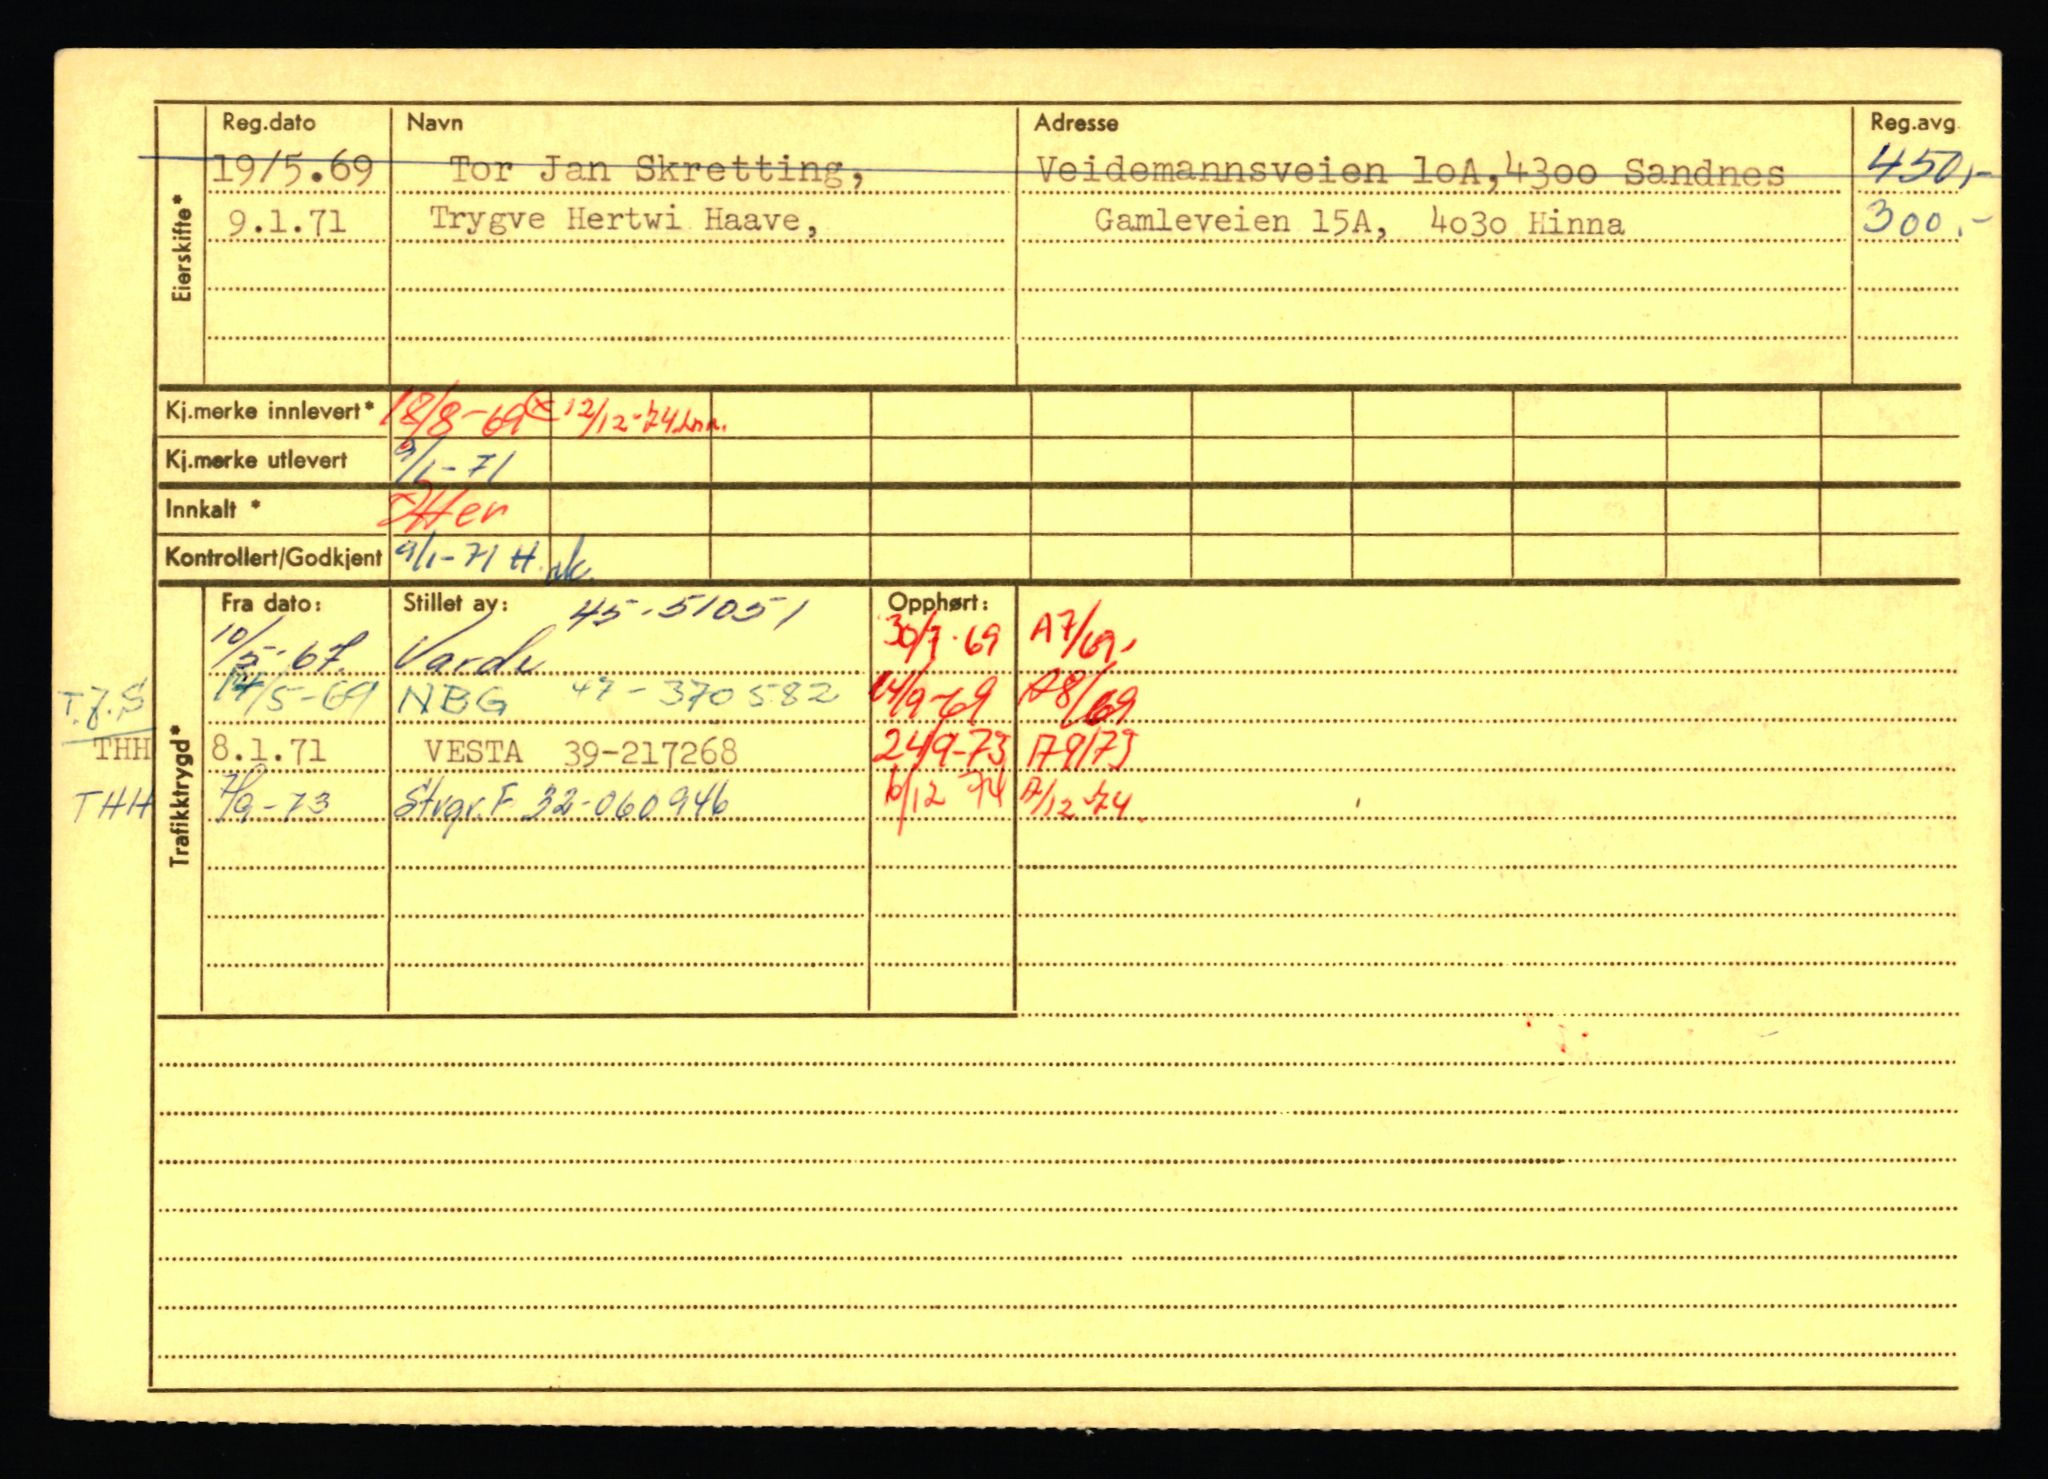 Eierskifte*
Reg.dato Navn Adresse Reg.avg.
19/5.69 Tor Jan Skretting, Veidemannsveien 10A, 4300 Sandnes 450,-
9.1.71 Trygve Hertwi Haave, Gamleveien 15A, 4030 Hinna 300.-
Kj.merke innlevert* 18/8-69 12/12-74
Kj.merke utlevert 9/1-71
Innkalt *
Kontrollert/Godkjent 9/1-71 H
Trafikktrygd*
Fra dato: Stillet av: 45-51051 Opphørt:
10/5-67 Varde 30/7-69 A7/69.
T.J.S 14/5-69 NBG 47-370582 14/9-69 A8/69
THH 8.1.71 VESTA 39-217268 24/9-73 A9/73
THH 7/9-73 Strgr. F 32-060946 6/12 74 A/12 74.